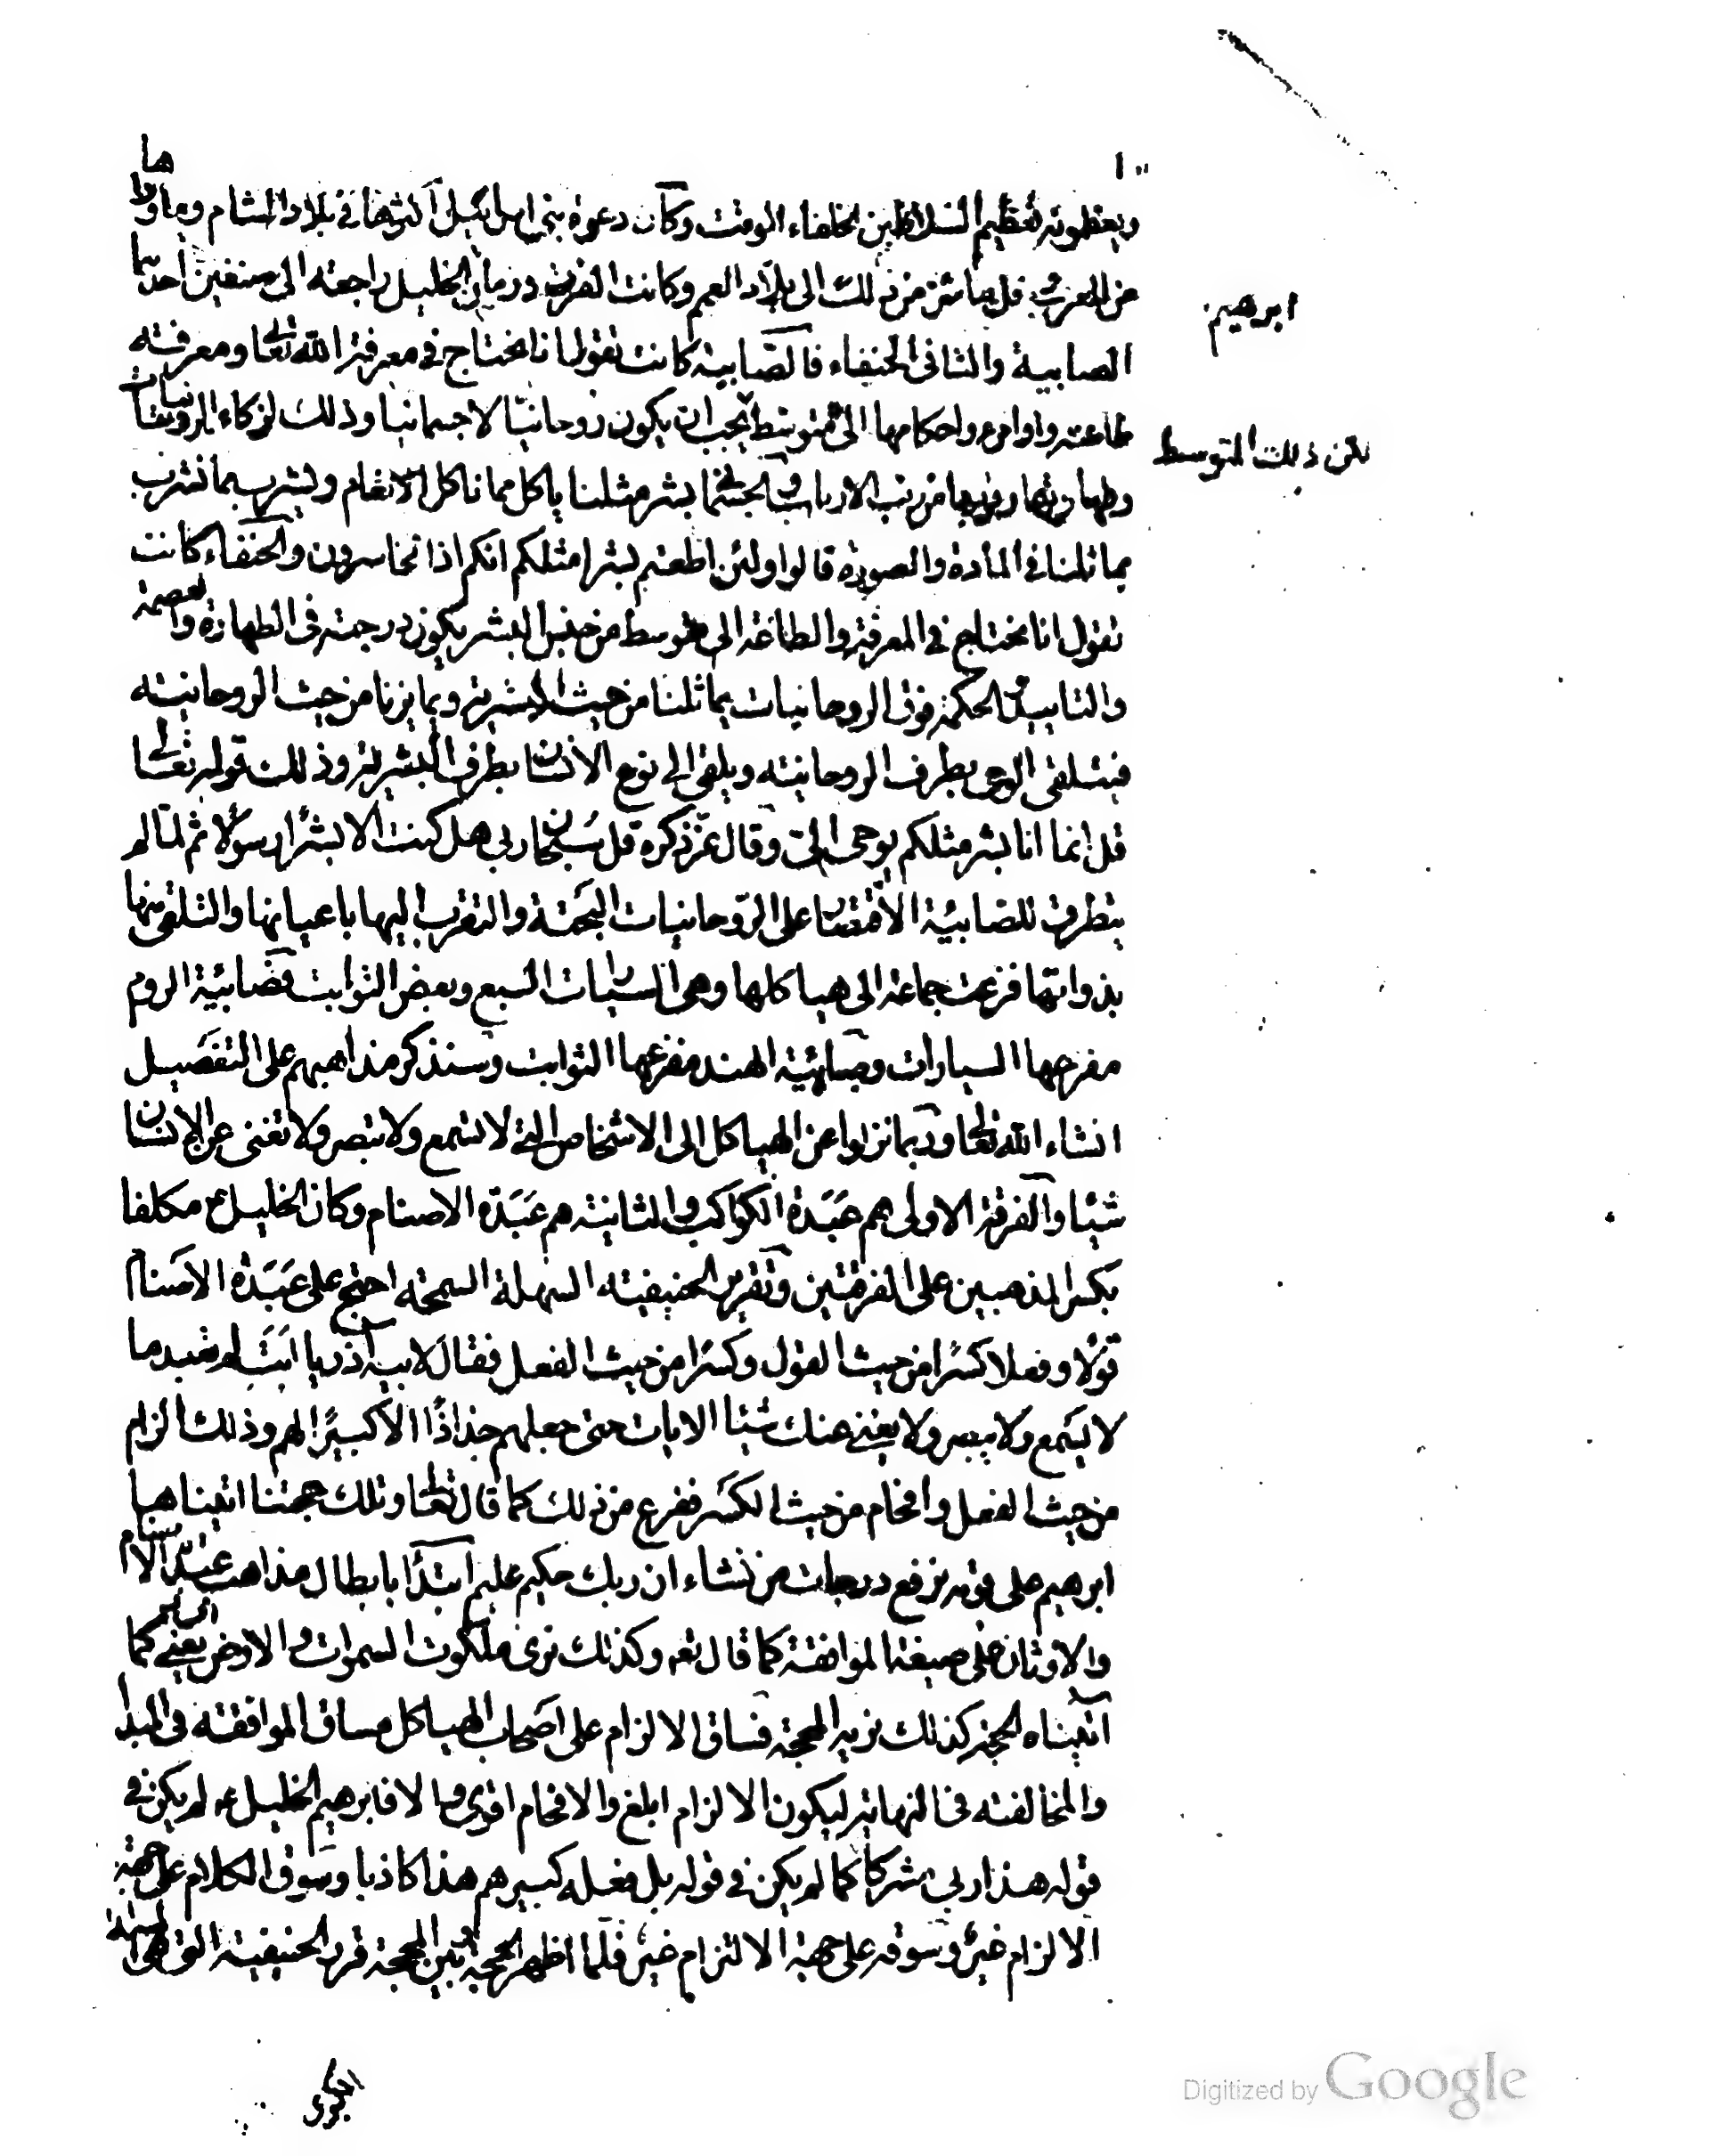 ١٠٠
ويعظمونه تعظيم السلاطين لخلفاء الوقت وكان دعوة بني اسرائيل اكثرها في بلاد الشام وما وراها
من المغرب وقل ما شن من ذلك الى بلاد العجم وكانت الفرق في زمان الخليل راجعة الى صنفين احدهما
ابرهيم
الصابية والثاني الحنفاء فالصابية كانت تقول انا نحتاج في معرفة الله تعالى ومعرفة
طاعته واوامره واحكامها الى متوسط يجب ان يكون روحانيا لا جسمانيا وذلك لزكاء الروحانيات
لكن ذلك المتوسط
وطهارتها وقربها من رب الارباب والجسماني بشر مثلنا ياكل مما ناكل الانعام ويشرب مما نشرب
يماثلنا في المادة والصورة قالوا ولئن اطعتم بشرا مثلكم انكم اذا لخاسرون والحنفاء كانت
تقول انا نحتاج في المعرفة والطاعة الى متوسط من جنس البشر يكون درجته في الطهارة والعصمة
والتاييد والحكمة فوق الروحانيات يماثلنا من حيث البشرية ويمايزنا من حيث الروحانية
فيتلقى الوحي بطرف الروحانية ويلقي الى نوع الانسان بطرف البشرية وذلك قوله تعالى
قل انما انا بشر مثلكم يوحى الي وقال عز ذكره قل سبحان ربي هل كنت الا بشرا رسولا ثم لما لم
يتطرق للصابية الاقتصار على الروحانيات البحتة والتقرب اليها باعيانها والتلقي منها
بذواتها فزعت جماعة الى هياكلها وهي السيارات السبع وبعض الثوابت فصابية الروم
مفزعها السيارات وصابئية الهند مفزعها الثوابت وسنذكر مذاهبهم على التفصيل
انشاء الله تعالى وربما نزلوا عن الهياكل الى الاشخاص التي لا تسمع ولا تبصر ولا تغني عن الانسان
شيئا والفرقة الاولى هم عبدة الكواكب والثانية هم عبدة الاصنام وكان الخليل ع مكلفا
بكسر المذهبين على الفرقتين وتقرير الحنيفية السهلة السمحة احتج على عبدة الاصنام
قولا وفعلا كسرا من حيث القول وكسرا من حيث الفعل فقال لابيه آذر يا ابت لم تعبد ما
لا يسمع ولا يبصر ولا يغني عنك شيئا الايات حتى جعلهم جذاذا الا كبيرا لهم وذلك الزام
من حيث الفعل وافحام من حيث الكسر ففرغ من ذلك كما قال تعالى وتلك حجتنا اتيناها
ابرهيم على قومه نرفع درجات من نشاء ان ربك حكيم عليم ابتدأ بابطال مذاهب عبدة الاصنام
والاوثان على صيغة الموافقة كما قال تعه وكذلك نرى ابراهيم ملكوت السموات والارض يعني كما
آتيناه الحجة كذلك نريه المحجة فساق الالزام على اصحاب الهياكل مساق الموافقة في المبدأ
والمخالفة في النهاية ليكون الالزام ابلغ والافحام اقوى والا فابرهيم الخليل عه لم يكن في
قوله هذا ربي مشركا كما لم يكن في قوله بل فعله كبيرهم هذا كاذبا وسوق الكلام على جهة
الالزام غير وسوقه على جهة الالتزام غير فلما اظهر الحجة وبين المحجة قرر الحنيفية التي هي
Digitized by Google